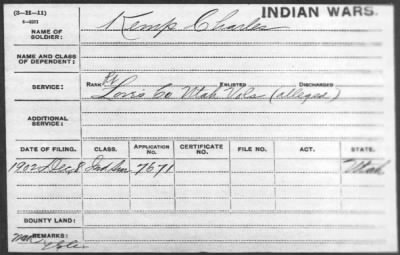 (3-H-11)
6-4023
INDIAN WARS.
NAME OF
SOLDIER:
Kemp Charles
NAME AND CLASS
OF DEPENDENT:
SERVICE:
RANK
ENLISTED
DISCHARGED
Co Utah Vols (alleged)
ADDITIONAL
SERVICE:
DATE OF FILING.
CLASS.
APPLICATION
NO.
CERTIFICATE
NO.
FILE NO.
ACT.
STATE.
1902 Dec 8
7671
Utah
BOUNTY LAND:
REMARKS: